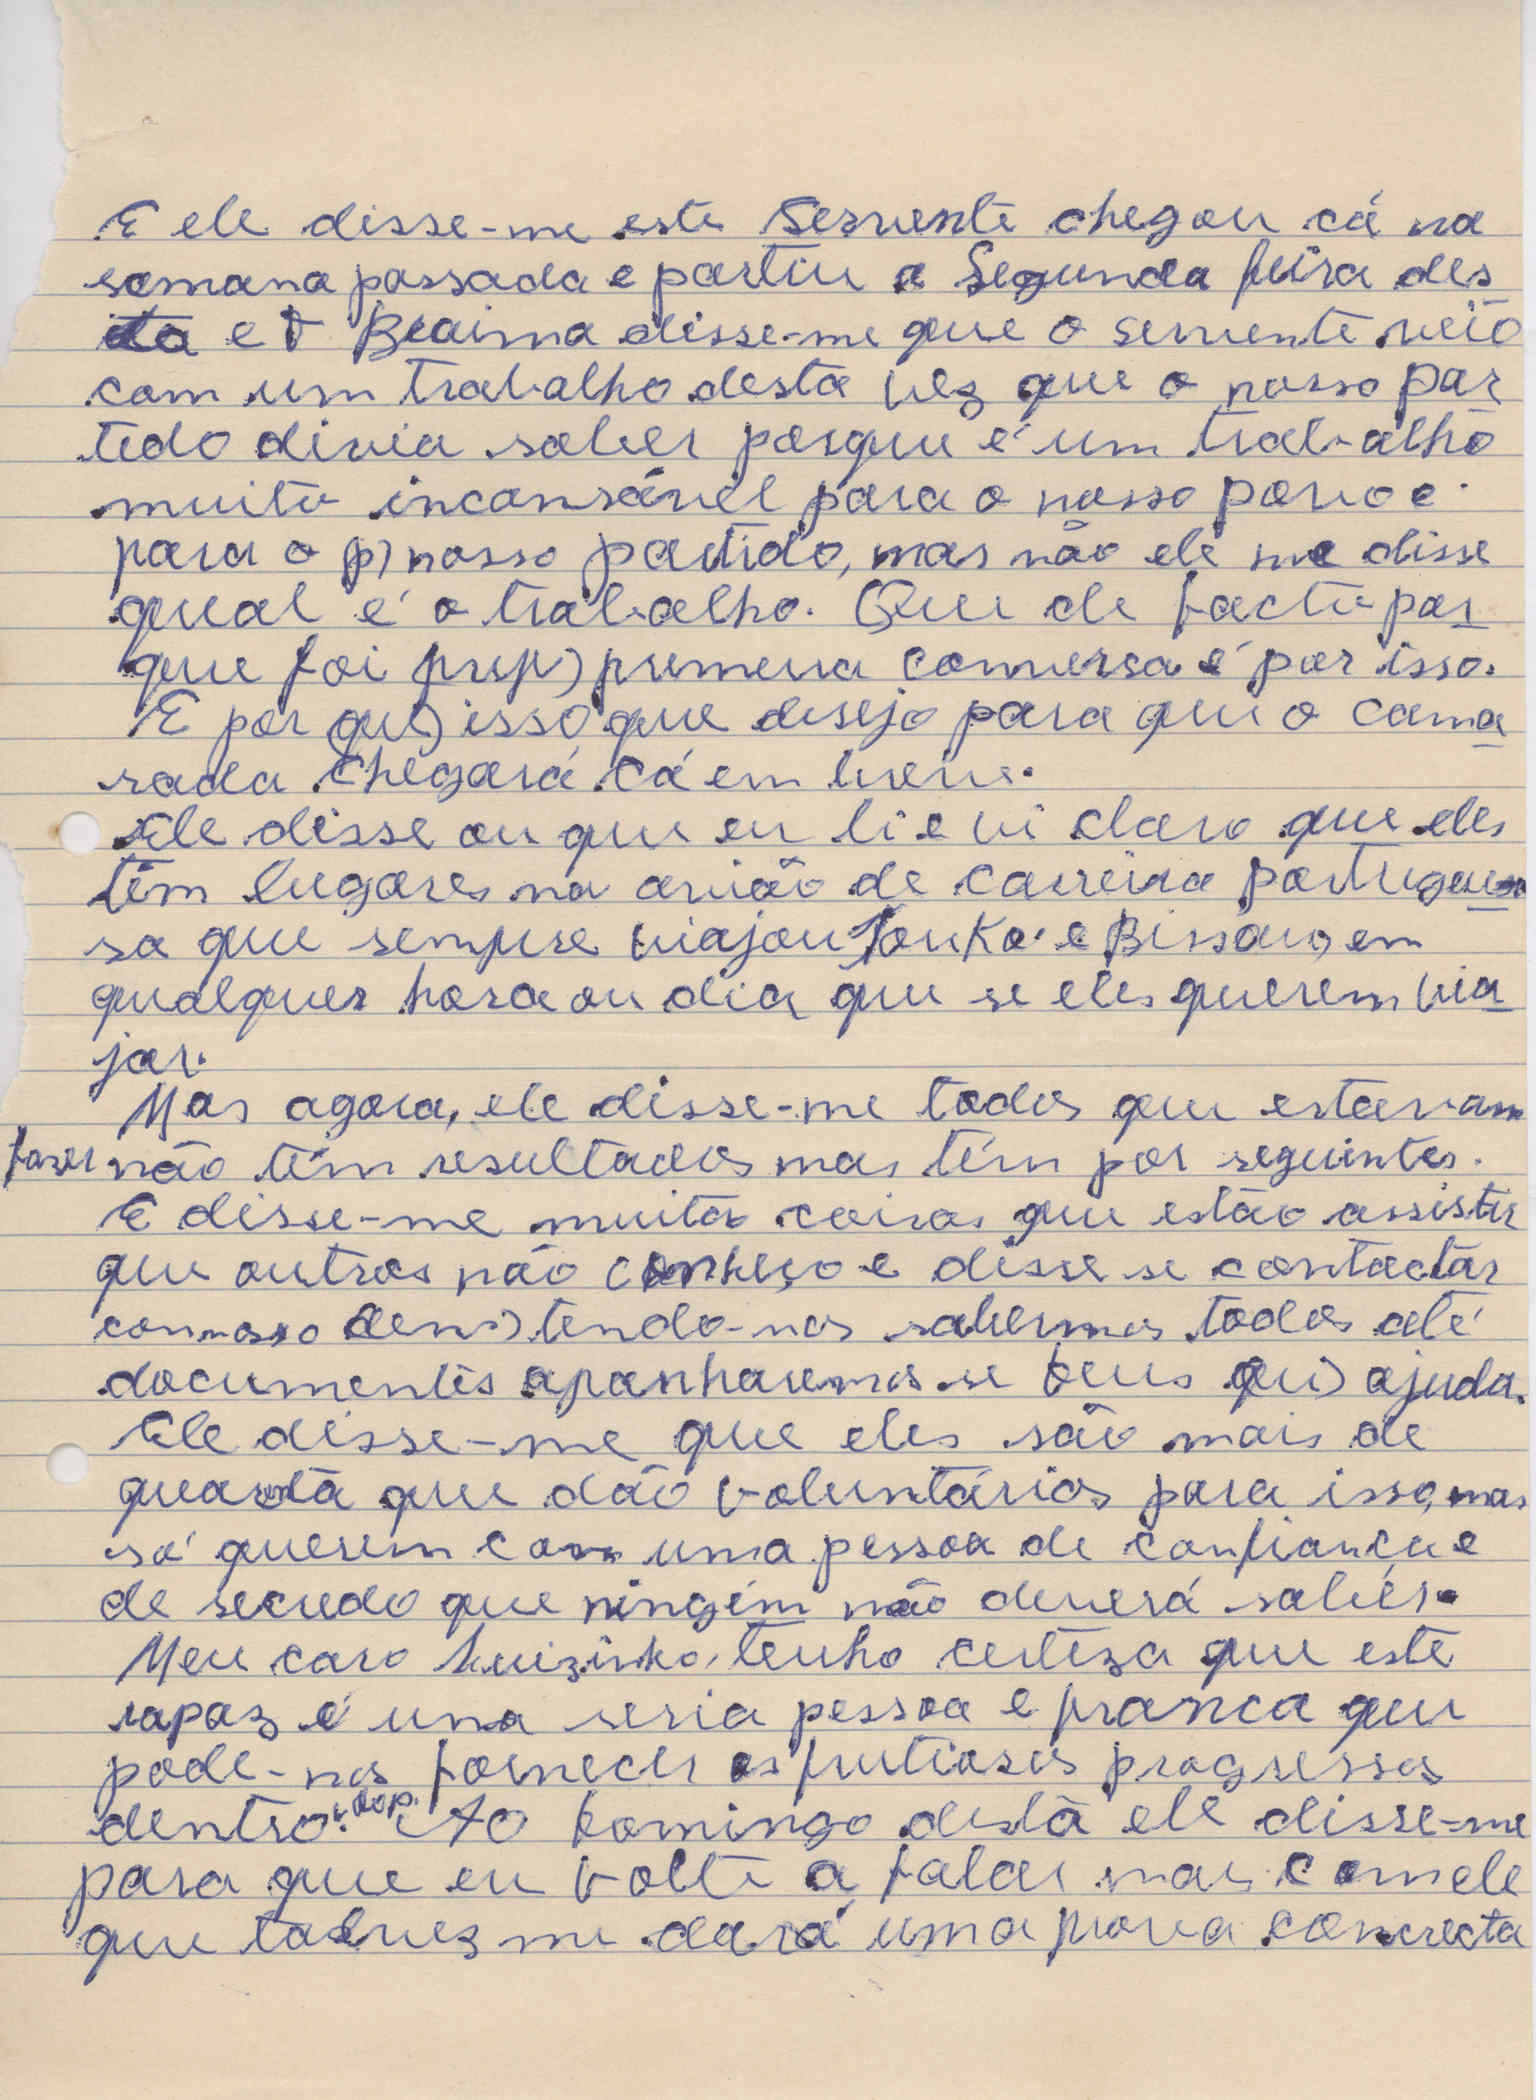 E ele disse-me este Servente chegou cá na
semana passada e partiu a Segunda feira des
ta e o Braima disse-me que o servente veio
com um trabalho desta vez que o nosso par
tido divia saber porque é um trabalho
muito incansável para o nosso povo e
para o p) nosso partido, mas não ele me disse
qual é o trabalho. Que de facto por
que foi prip) premera conversa é por isso.
E por que) isso que desejo para que o cama
rada chegará cá em breve.
Ele disse ou que eu li e vi claro que eles
têm lugares na avião de carreira portugue
sa que sempre viajou e Bissau, em
qualquer hora ou dia que se eles querem via
jar.
Mas agora, ele disse-me todos que estavam
fazer não têm resultados mas têm por seguintes.
E disse-me muitas coisas que estão assistir
que outros não conheço e disse se contactar
connosco tendo-nos sabermos todos até
documentos apanharemos se Deus qu) ajuda.
Ele disse-me que eles são mais de
quarenta que dão voluntários para isso, mas
só querem com uma pessoa de confiança e
de secredo que ningém não deverá saber.
Meu caro Luizinho, tenho certeza que este
rapaz é uma seria pessoa e franca que
pode-nos fornecer os frutiosos progressos
dentro. Ao Domingo desta ele disse-me
para que eu volte a falar mas com ele
que talvez me dará uma prova concrecta